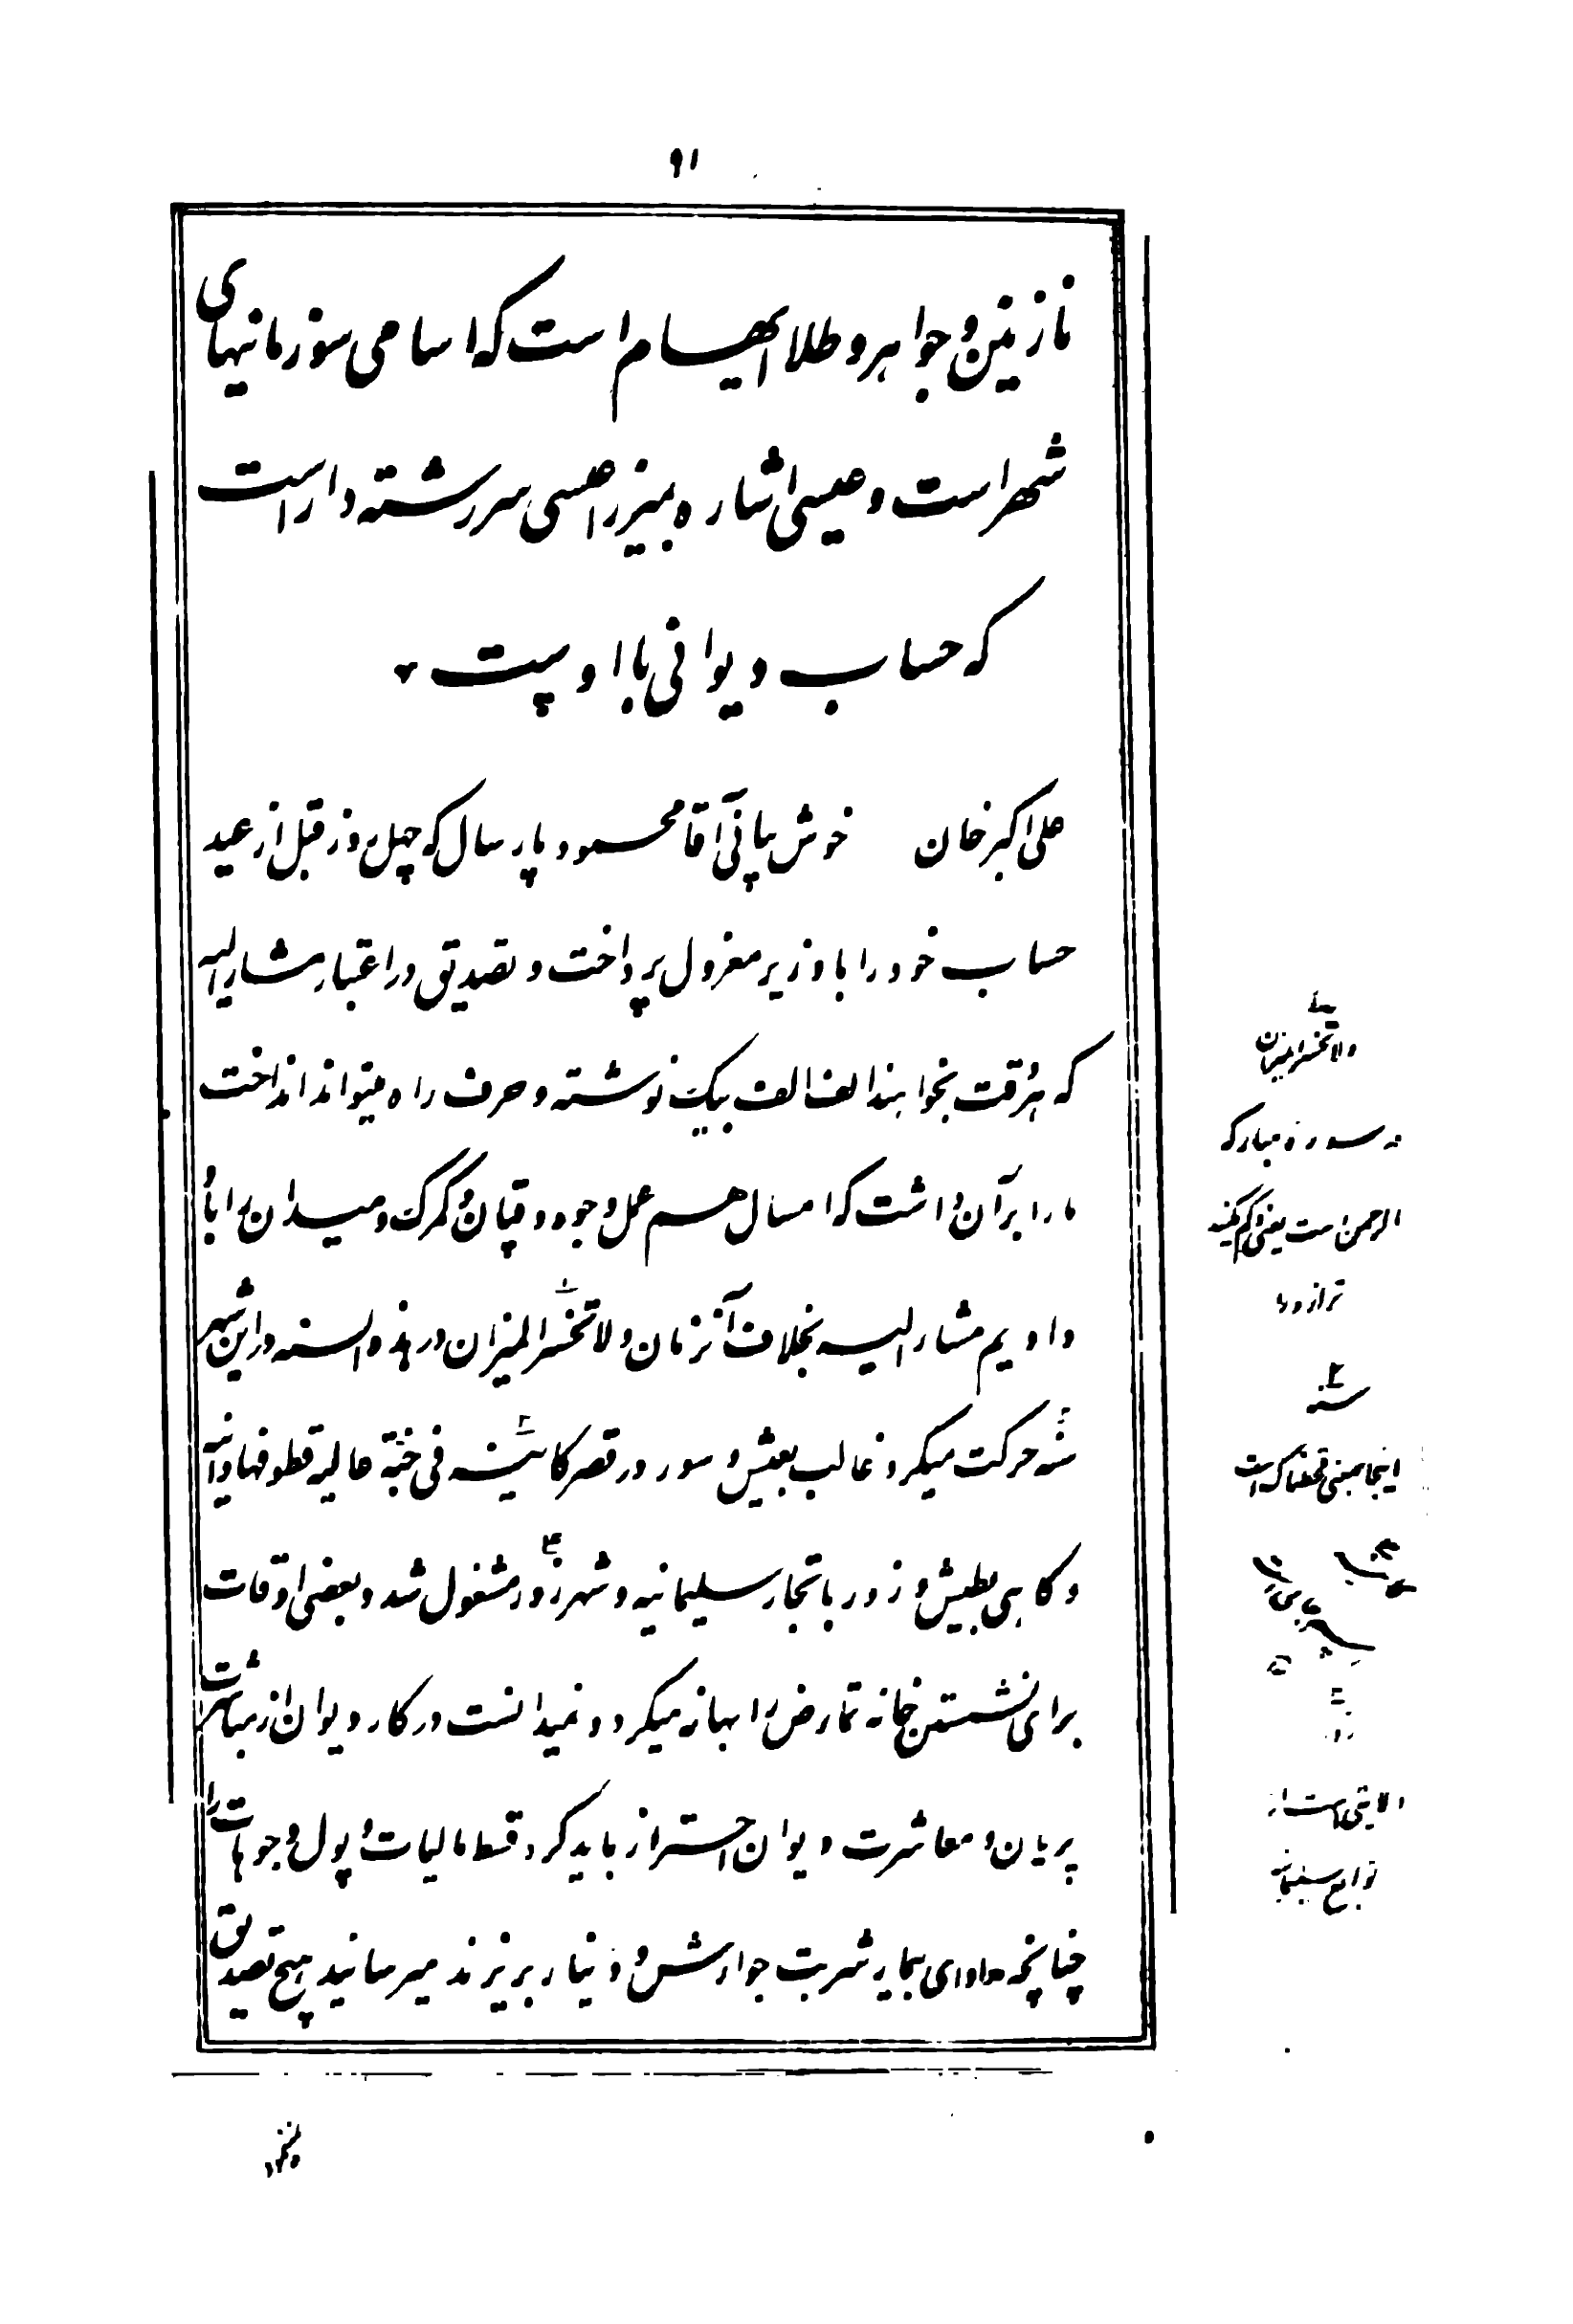 ۹۱
نازنین و جواهر و طلا ایهام است که اسامی سوزمانیهای
شهر است و عیسی اشاره بمیرزا عیسی سررشته دار است
که حساب دیوانی با اوست
علی اکبر خان خوش بیانی آقا محمود پارسال که چهل روز قبل از عید
حساب خود را با وزیر معزول پرداخت و تصدیق در اعتبار مشارالیه
که هر وقت بخواهند الف الف بیک نوشته و حرف راه میتواند انداخت
ما را بر آن داشت که امسال هم عمل وجوه و قپان و گمرک و میدان را باو
دادیم مشارالیه بخلاف آنزمان ولا تخسر المیزان در هذه السنه در این شهر
سنه حرکت میکرد غالب بعیش و سور در قصر کاشینه فی جنة عالیه قطوفها دانیه
و کاهی بطیش و زور با تجار سلیمانیه و شهرزور مشغول شد و بعضی اوقات
برای نشستن خانه تمارض را بهانه میکرد و نمیدانست در کار دیوان از مباشرت
پریان و معاشرت دیوان احتراز باید کرد قسط مالیات و پول وجوهات را
چنانچه مداوای بیمار شربت جوارش و دنیار بریزند میرسانید هیچ تصدیق
ولا تخسر المیزان
در سوره مبارکه
الرحمن است یعنی کم نکنید
ترازو را
۲
سنه
اینجا بمعنی قحطناک است
ولایتی است از
توابع سلیمانیه